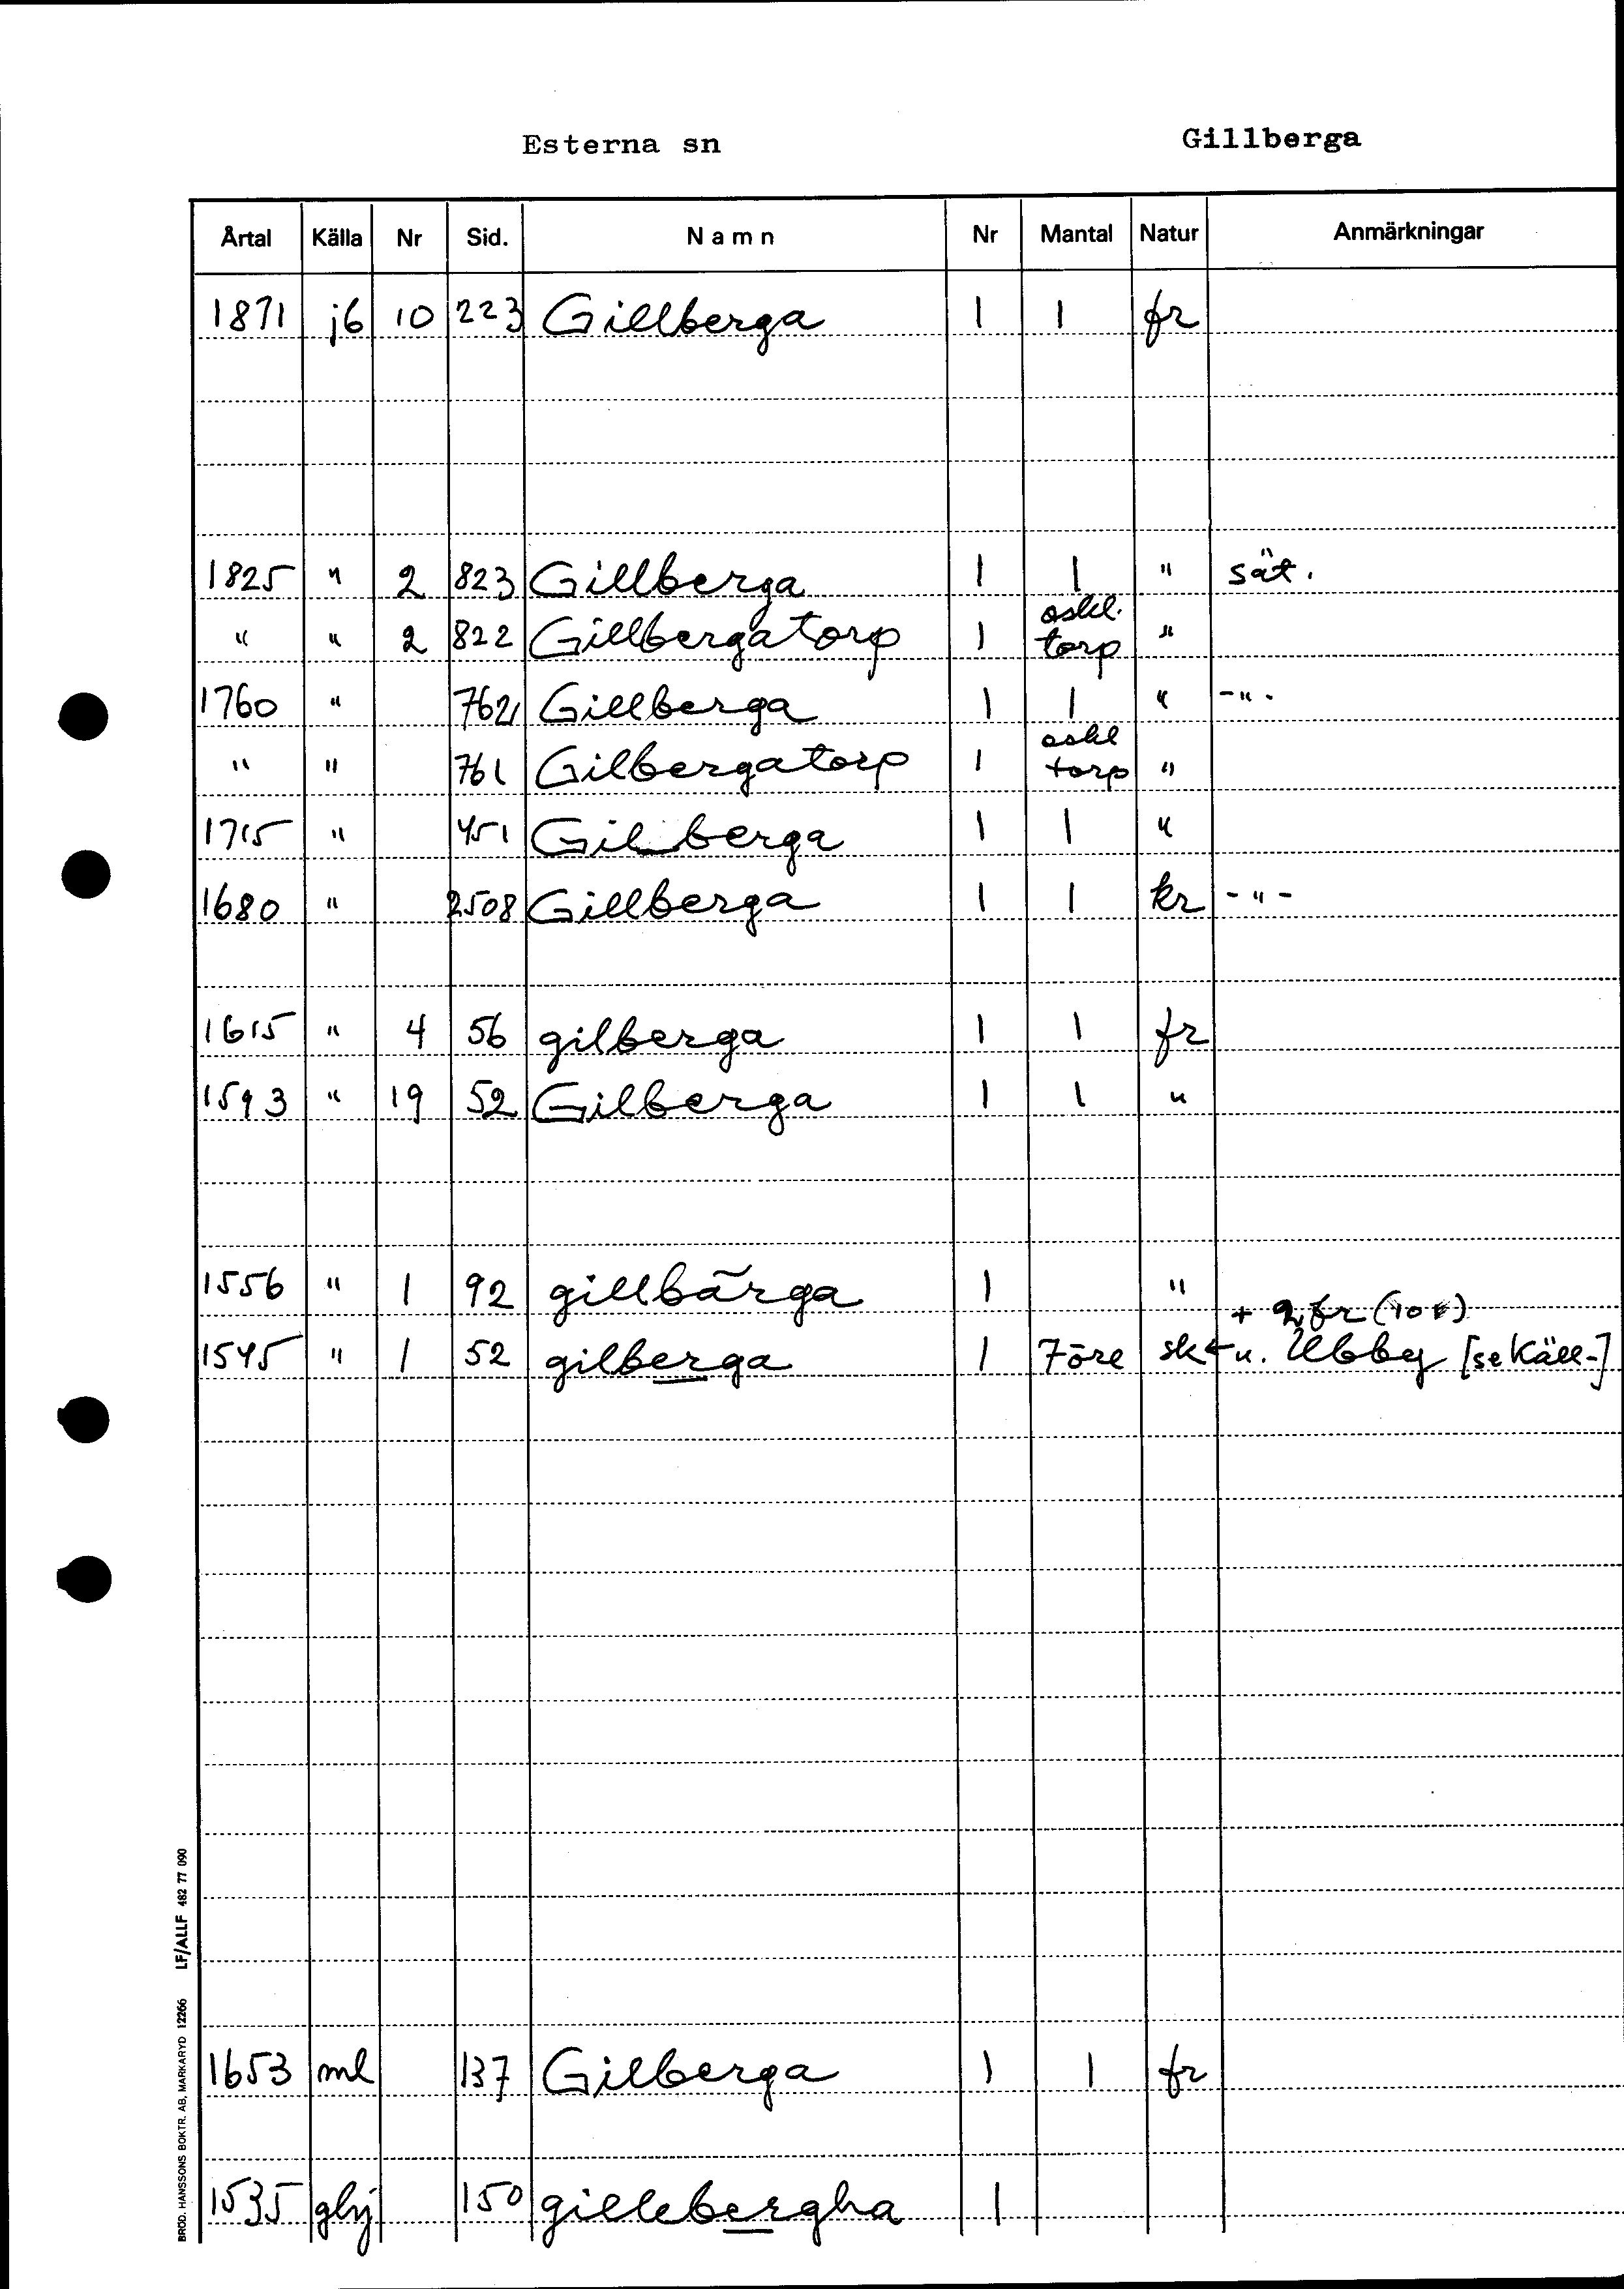 Esterna sn Gillberga
Årtal Källa Nr Sid. Namn Nr Mantal Natur Anmärkningar
1871 j6 10 223 Gillberga 1 1 fr
1825 " 2 823 Gillberga 1 1 " sät.
" " 2 822 Gillbergatorp 1 oskl. torp "
1760 " 762 Gillberga 1 1 " -"-
" " 761 Gilbergatorp 1 oskl torp "
1715 " 451 Gilberga 1 1 "
1680 " 2508 Gillberga 1 1 kr -"-
1615 " 4 56 gilberga 1 1 fr
1593 " 19 52 Gilberga 1 1 "
1556 " 1 92 gillbärga 1 "
+ 2 fr
1545 " 1 52 gilberga 1 7öre sk u. Ubby [se Käll-]
1653 ml 137 Gilberga 1 1 fr
1535 ghj 150 gillebergha 1
BRÖD. HANSSONS BOKTR. AB, MARKARYD 12266 LF/ALLF 482 77 090